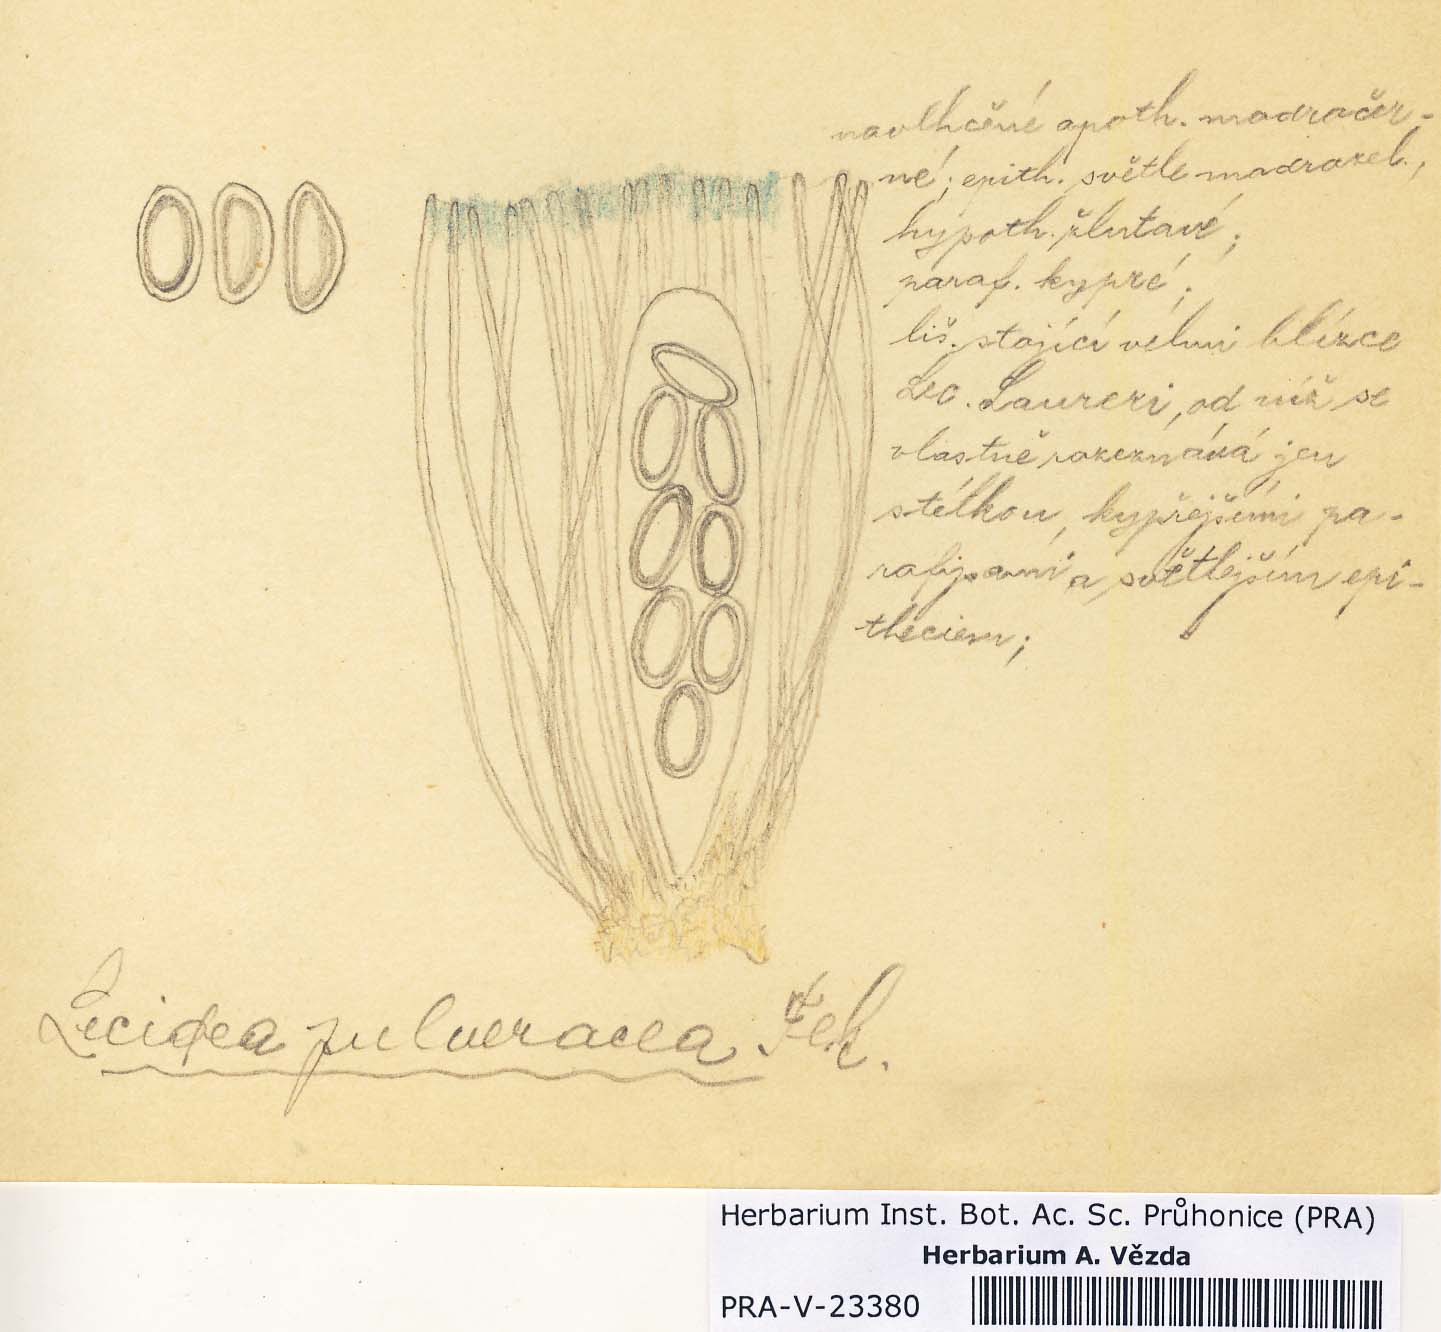 navlhčené apoth. modračer-
né; epith. světle modrozel.,
hypoth. žlutavé;
paraf. kypré;
liš. stojící velmi blízce
Lec. Laureri, od níž se
vlastně rozeznává jen
stélkou, kypřejšími pa-
rafysami a světlejším epi-
theciem;
Lecidea pulveracea Flk.
Herbarium Inst. Bot. Ac. Sc. Průhonice (PRA)
Herbarium A. Vězda
PRA-V-23380